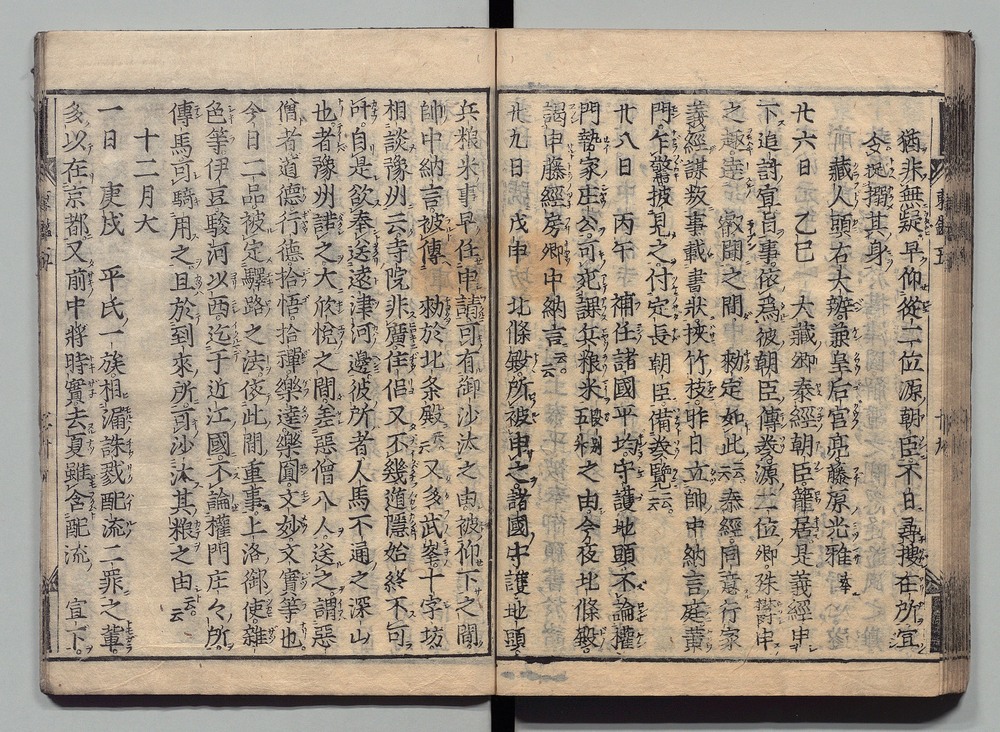 猶非無疑早仰從二位源朝臣不日尋搜在所宜
令捉搦其身
廿六日 乙巳 大藏卿泰經朝臣籠居是義經申
下追討宣旨事依爲被朝臣傳奏源二位卿殊欝申
之趣達 叡聞之間 勅定如此云云泰經同意行家
義經謀叛事載書狀挾竹枝昨日立帥中納言庭
門乍驚披見之付定長朝臣備奏覽云云
廿八日 丙午 補任諸國平均守護地頭不論權
門勢家庄公可宛課兵粮米段別五升之由今夜北條殿
謁申藤經房卿中納言云云
廿九日 戊申 北條殿所被申之諸國守護地頭
兵粮米事早任申請可有御沙汰之由被仰下之間
帥中納言被傳 勅於北条殿云云又多武峯十字坊
相談豫州云寺院非廣住侶又不幾遁隱始終不可
叶自是欲奉送遠津河邊彼所者人馬不通之深山
也者豫州諾之大欣悅之間差惡僧八人送之謂惡
僧者道德行德拾悟拾禪樂達樂圓文妙文實等也
今日二品被定驛路之法依此間重事上洛御使雜
色等伊豆駿河以西迄于近江國不論權門庄々所
傳馬可騎用之且於到來所可沙汰其粮之由云云
十二月大
一日 庚戌 平氏一族相漏誅戮配流二罪之輩
多以在京都又前中將時實去夏雖含配流 宣下